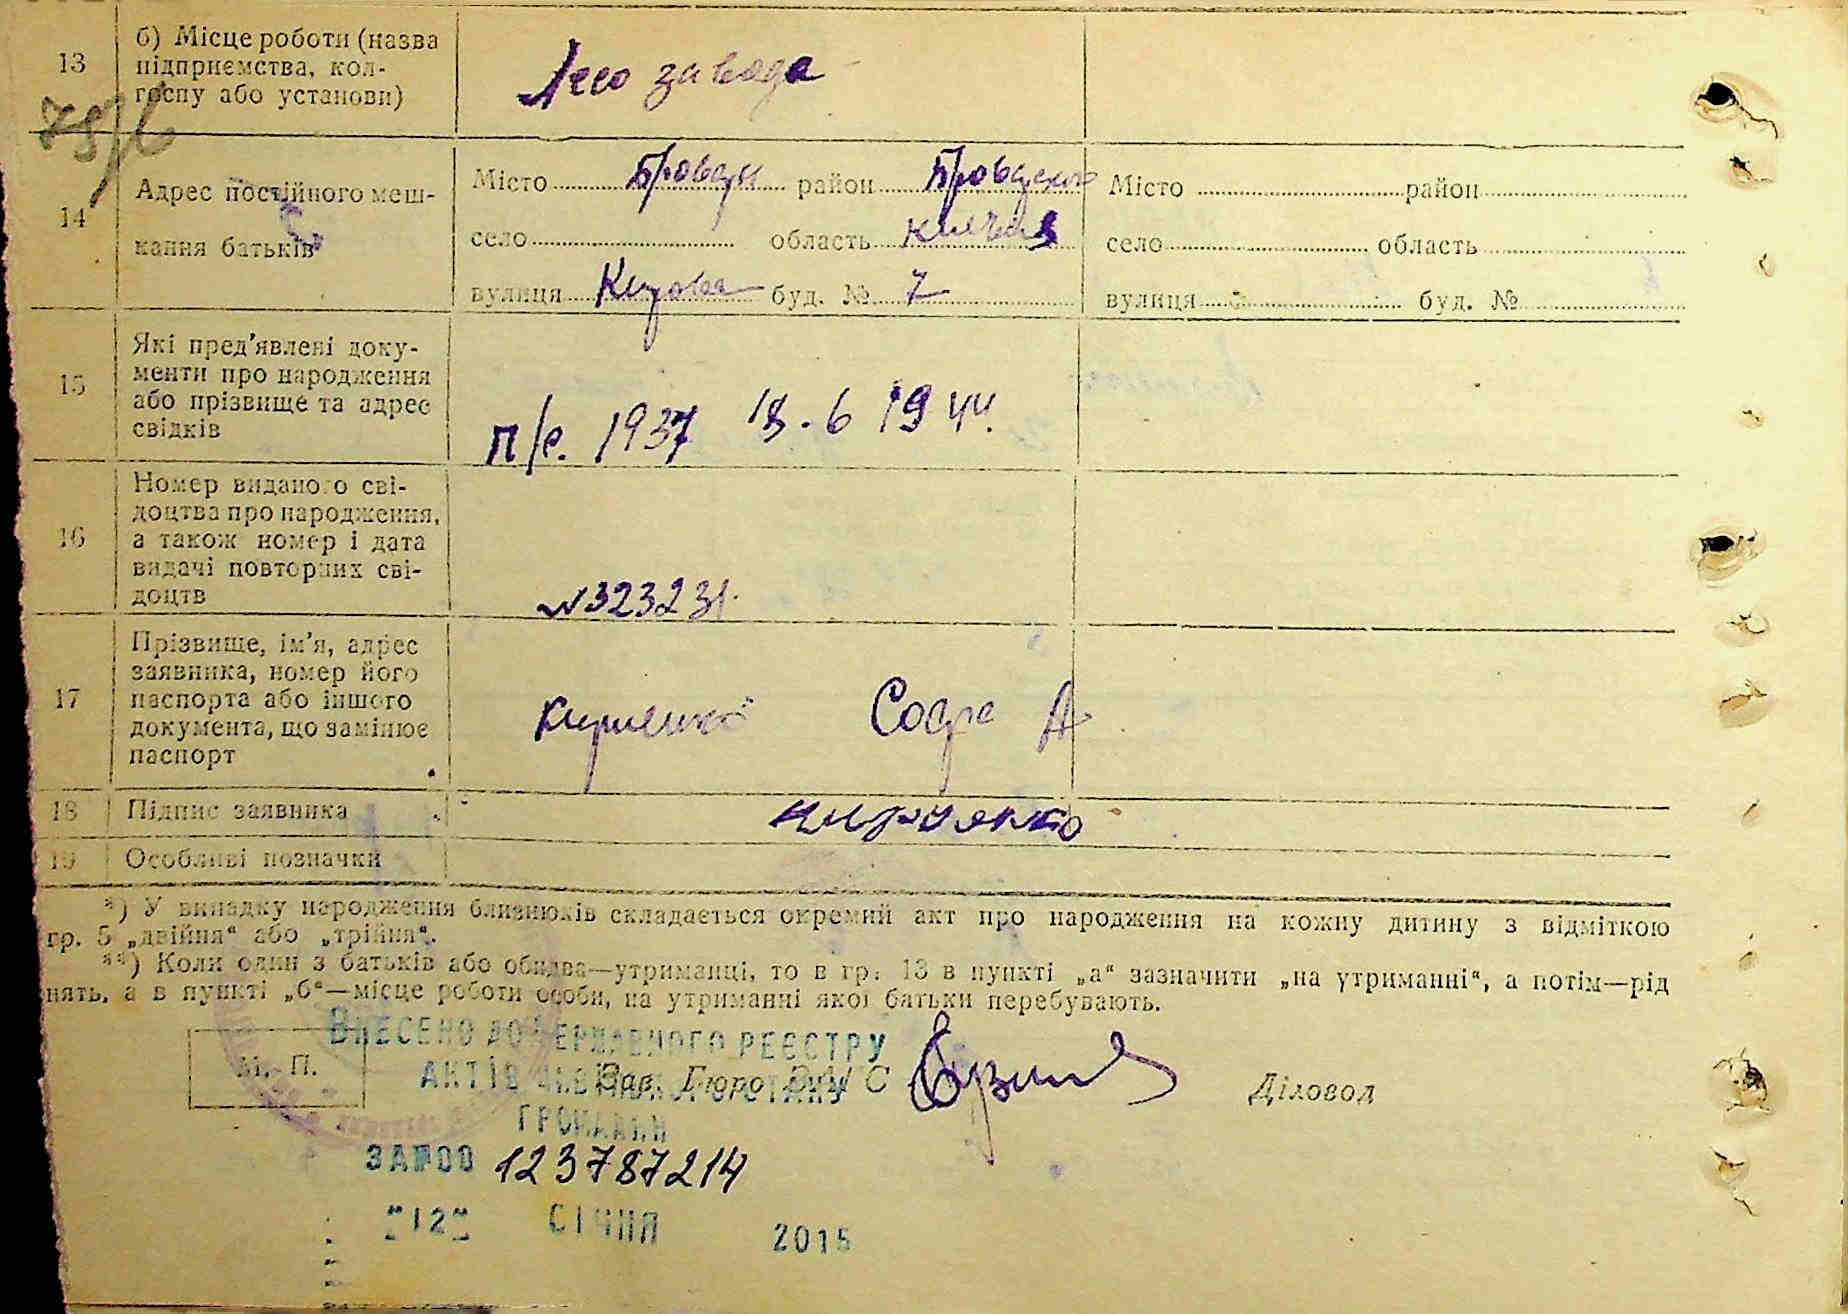 13
б) Місце роботи (назва
підприємства, кол-
госпу або установи)
Лесо завода
75/6
14
Адрес постійного меш-
кання батьків
Місто Бровары район Броварского
село область Киевская
вулиця Кирова буд. № 7
Місто район
село область
вулиця буд. №
15
Які пред'явлені доку-
менти про народження
або прізвище та адрес
свідків
п/с. 1937 18.6 1944.
16
Номер виданого сві-
доцтва про народження,
а також номер і дата
видачі повторних сві-
доцтв
№323231.
17
Прізвище, ім'я, адрес
заявника, номер його
паспорта або іншого
документа, що замінює
паспорт
А
18
Підпис заявника
19
Особливі позначки
*) У випадку народження близнюків складається окремий акт про народження на кожну дитину з відміткою
гр. 5 „двійня“ або „трійня“.
**) Коли один з батьків або обидва—утриманці, то в гр. 13 в пункті „а“ зазначити „на утриманні“, а потім—рід
нять, а в пункті „б“—місце роботи особи, на утриманні якої батьки перебувають.
ВНЕСЕНО ДО ДЕРЖАВНОГО РЕЄСТРУ
М. П.
АКТІВ ЦИВІЛЬНОГО СТАНУ
Зав. Бюро ЗАГС
Діловод
ГРОМАДЯН
ЗА №00 123787214
"12" СІЧНЯ 2015